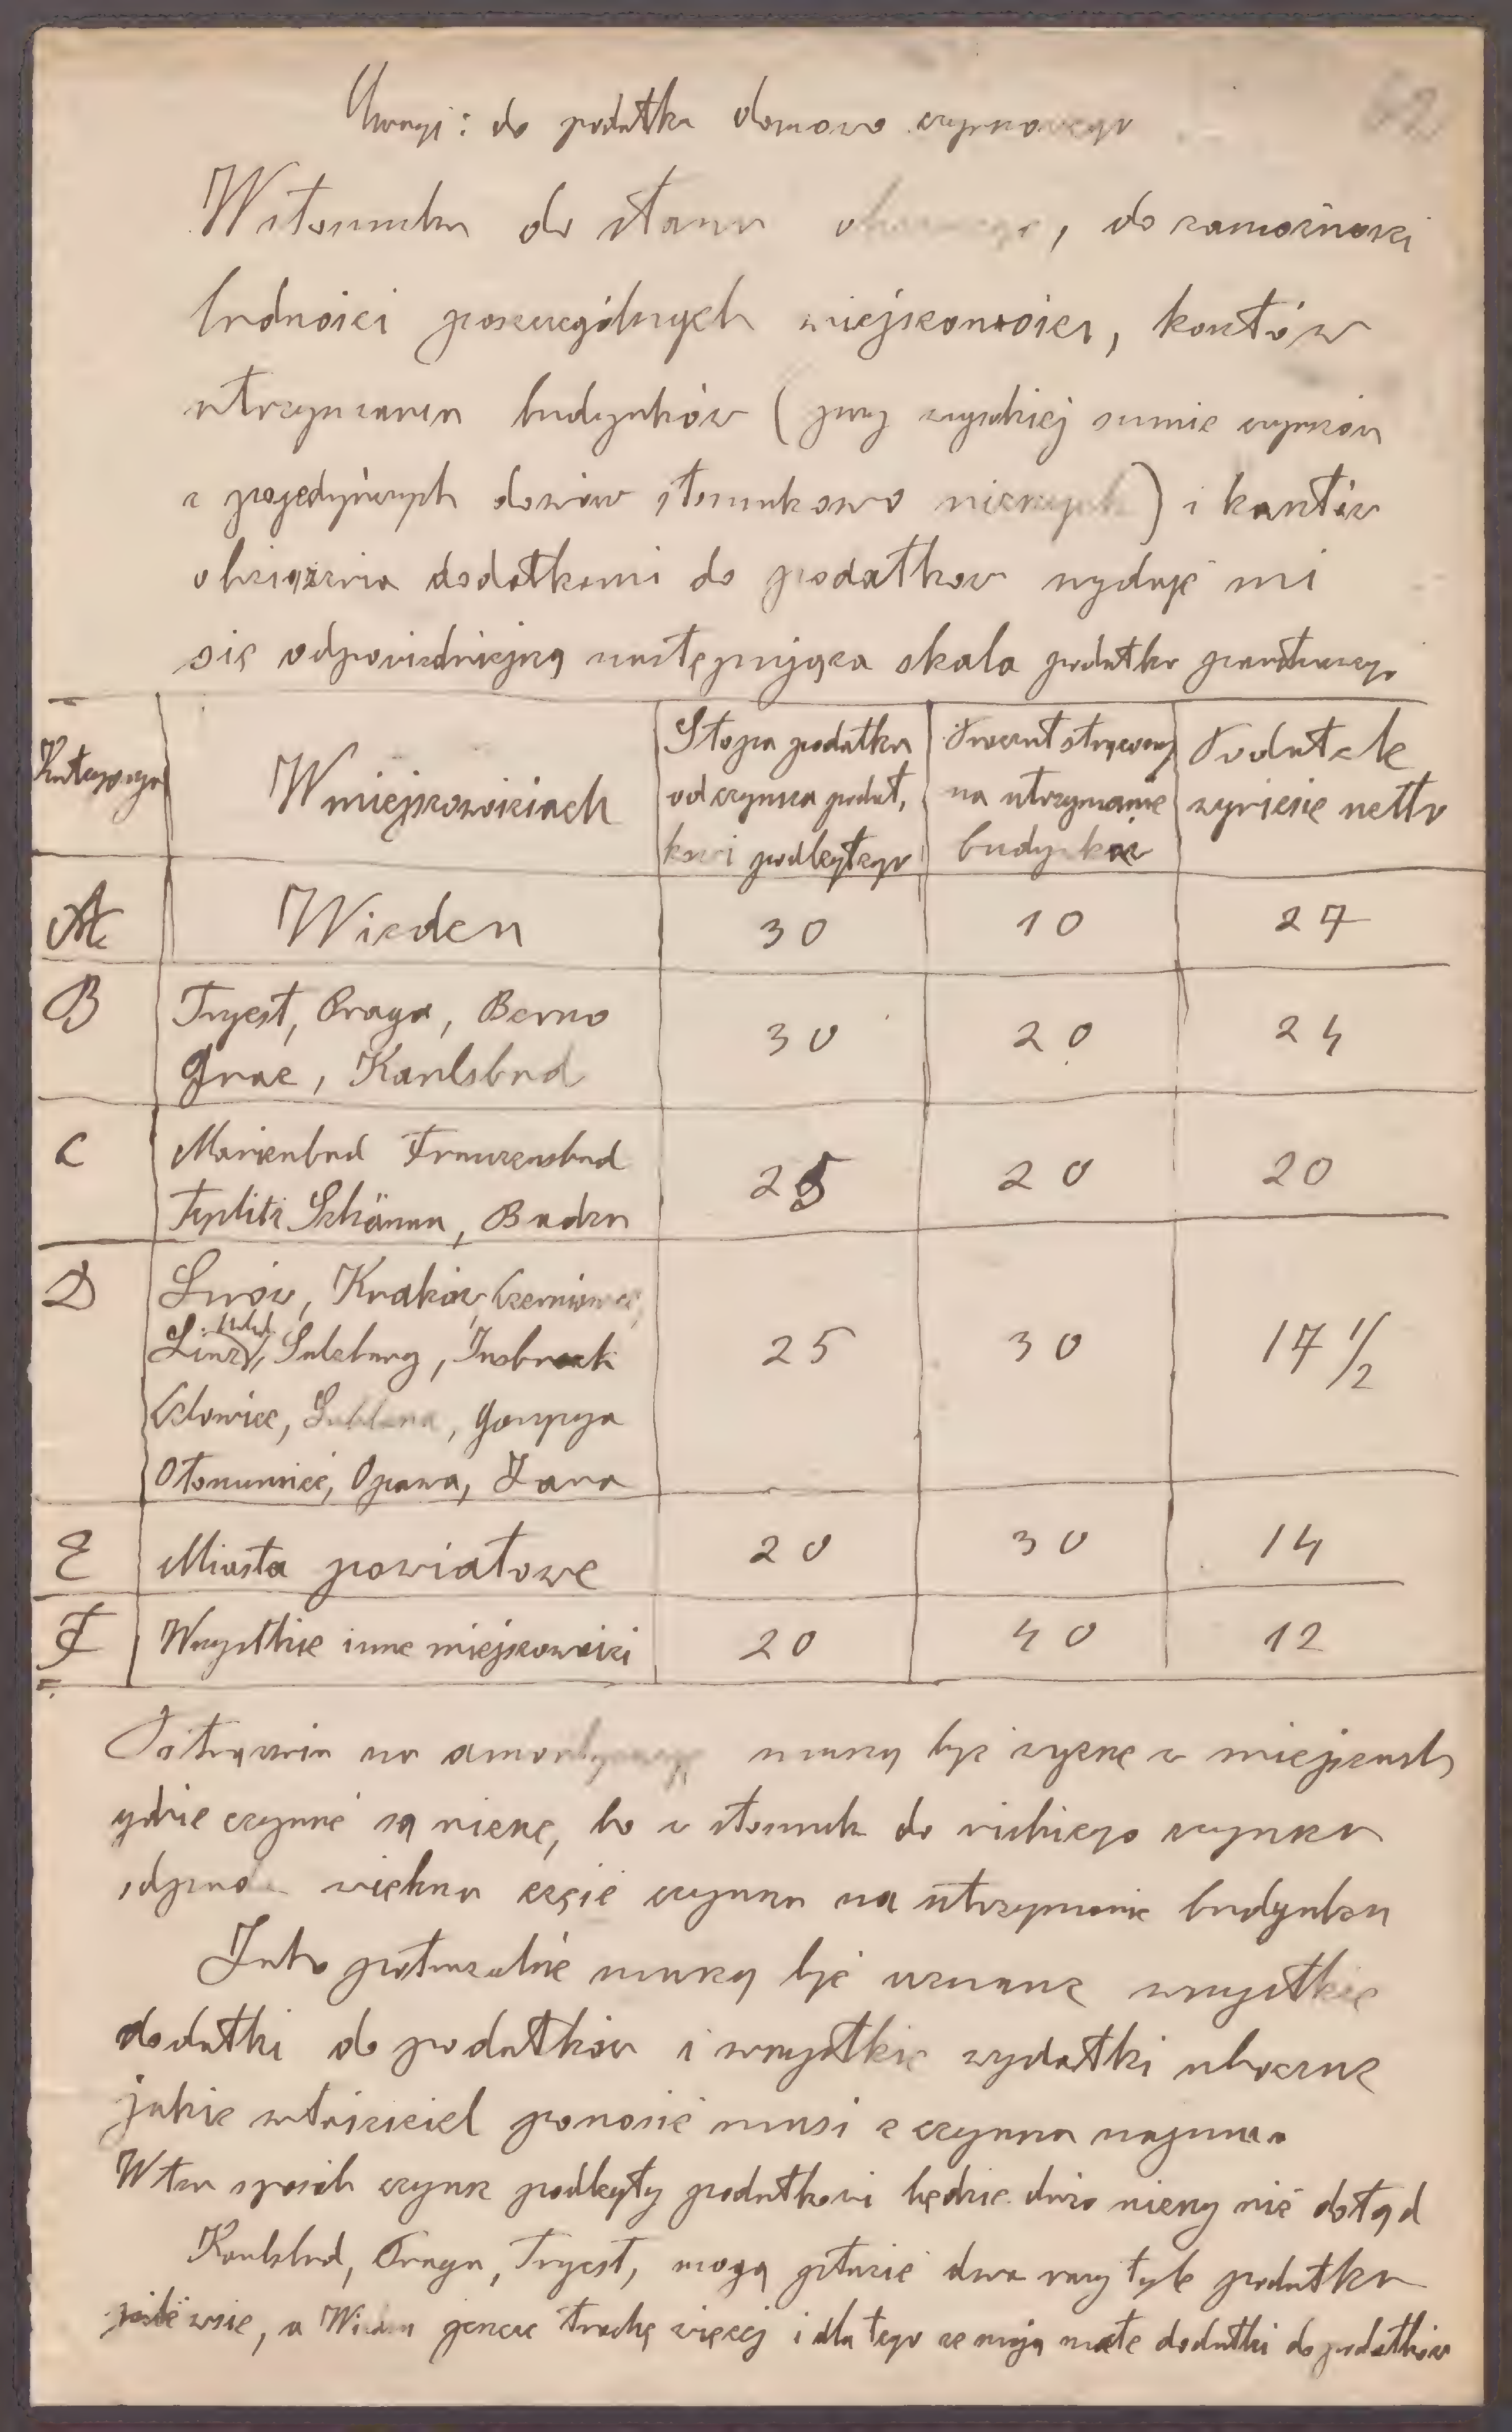 Uwagi: do podatku domowo czynszowego
W stosunku do stanu , do zamożności
ludności poszczególnych miejscowości, kosztów
utrzymania budynków (przy wysokiej sumie czynszów
z pojedyńczych domów stosunkowo niższych) i kosztów
obciążenia dodatkami do podatkow wydaje mi
się odpowiedniejszą następująca skala podatku państwowego
Kategorya
W miejscowościach
Stopa podatku
od czynszu podat,
kowi podległego
Procent strącony
na utrzymanie
budynków
Podatek
wyniesie netto
A Wieden 30 10 27
B Tryest, Praga, Berno
Grac, Karlsbad 30 20 24
C Marienbad Franzensbad
Teplitz Schönau, Baden 25 20 20
D Lwów, Kraków, Czerniowce,
Linz, Salzburg, Insbruck
Celowiec, Lublana, Gorycya
Ołomuniec, Opawa, Zara 25 30 17 1/2
E Miasta powiatowe 20 30 14
F Wszystkie inne miejscowości 20 40 12
Potrącenia na amortyzacyę muszą być wyższe w miejscach
gdzie czynsze są niższe, bo w stosunku do niskiego czynszu
odpada większa część czynszu na utrzymanie budynku
Jako potrącalne muszą być uznane wszystkie
dodatki do podatków i wszystkie wydatki uboczne
jakie właściciel ponosić musi z czynszu najmu.
W ten sposób czynsz podległy podatkowi będzie dużo niższy niż dotąd
Karlsbad, Praga, Tryest, mogą płacić dwa razy tyle podatku
jak wsie, a Wieden jeszcze trochę więcej i dla tego ze mają małe dodatki do podatków